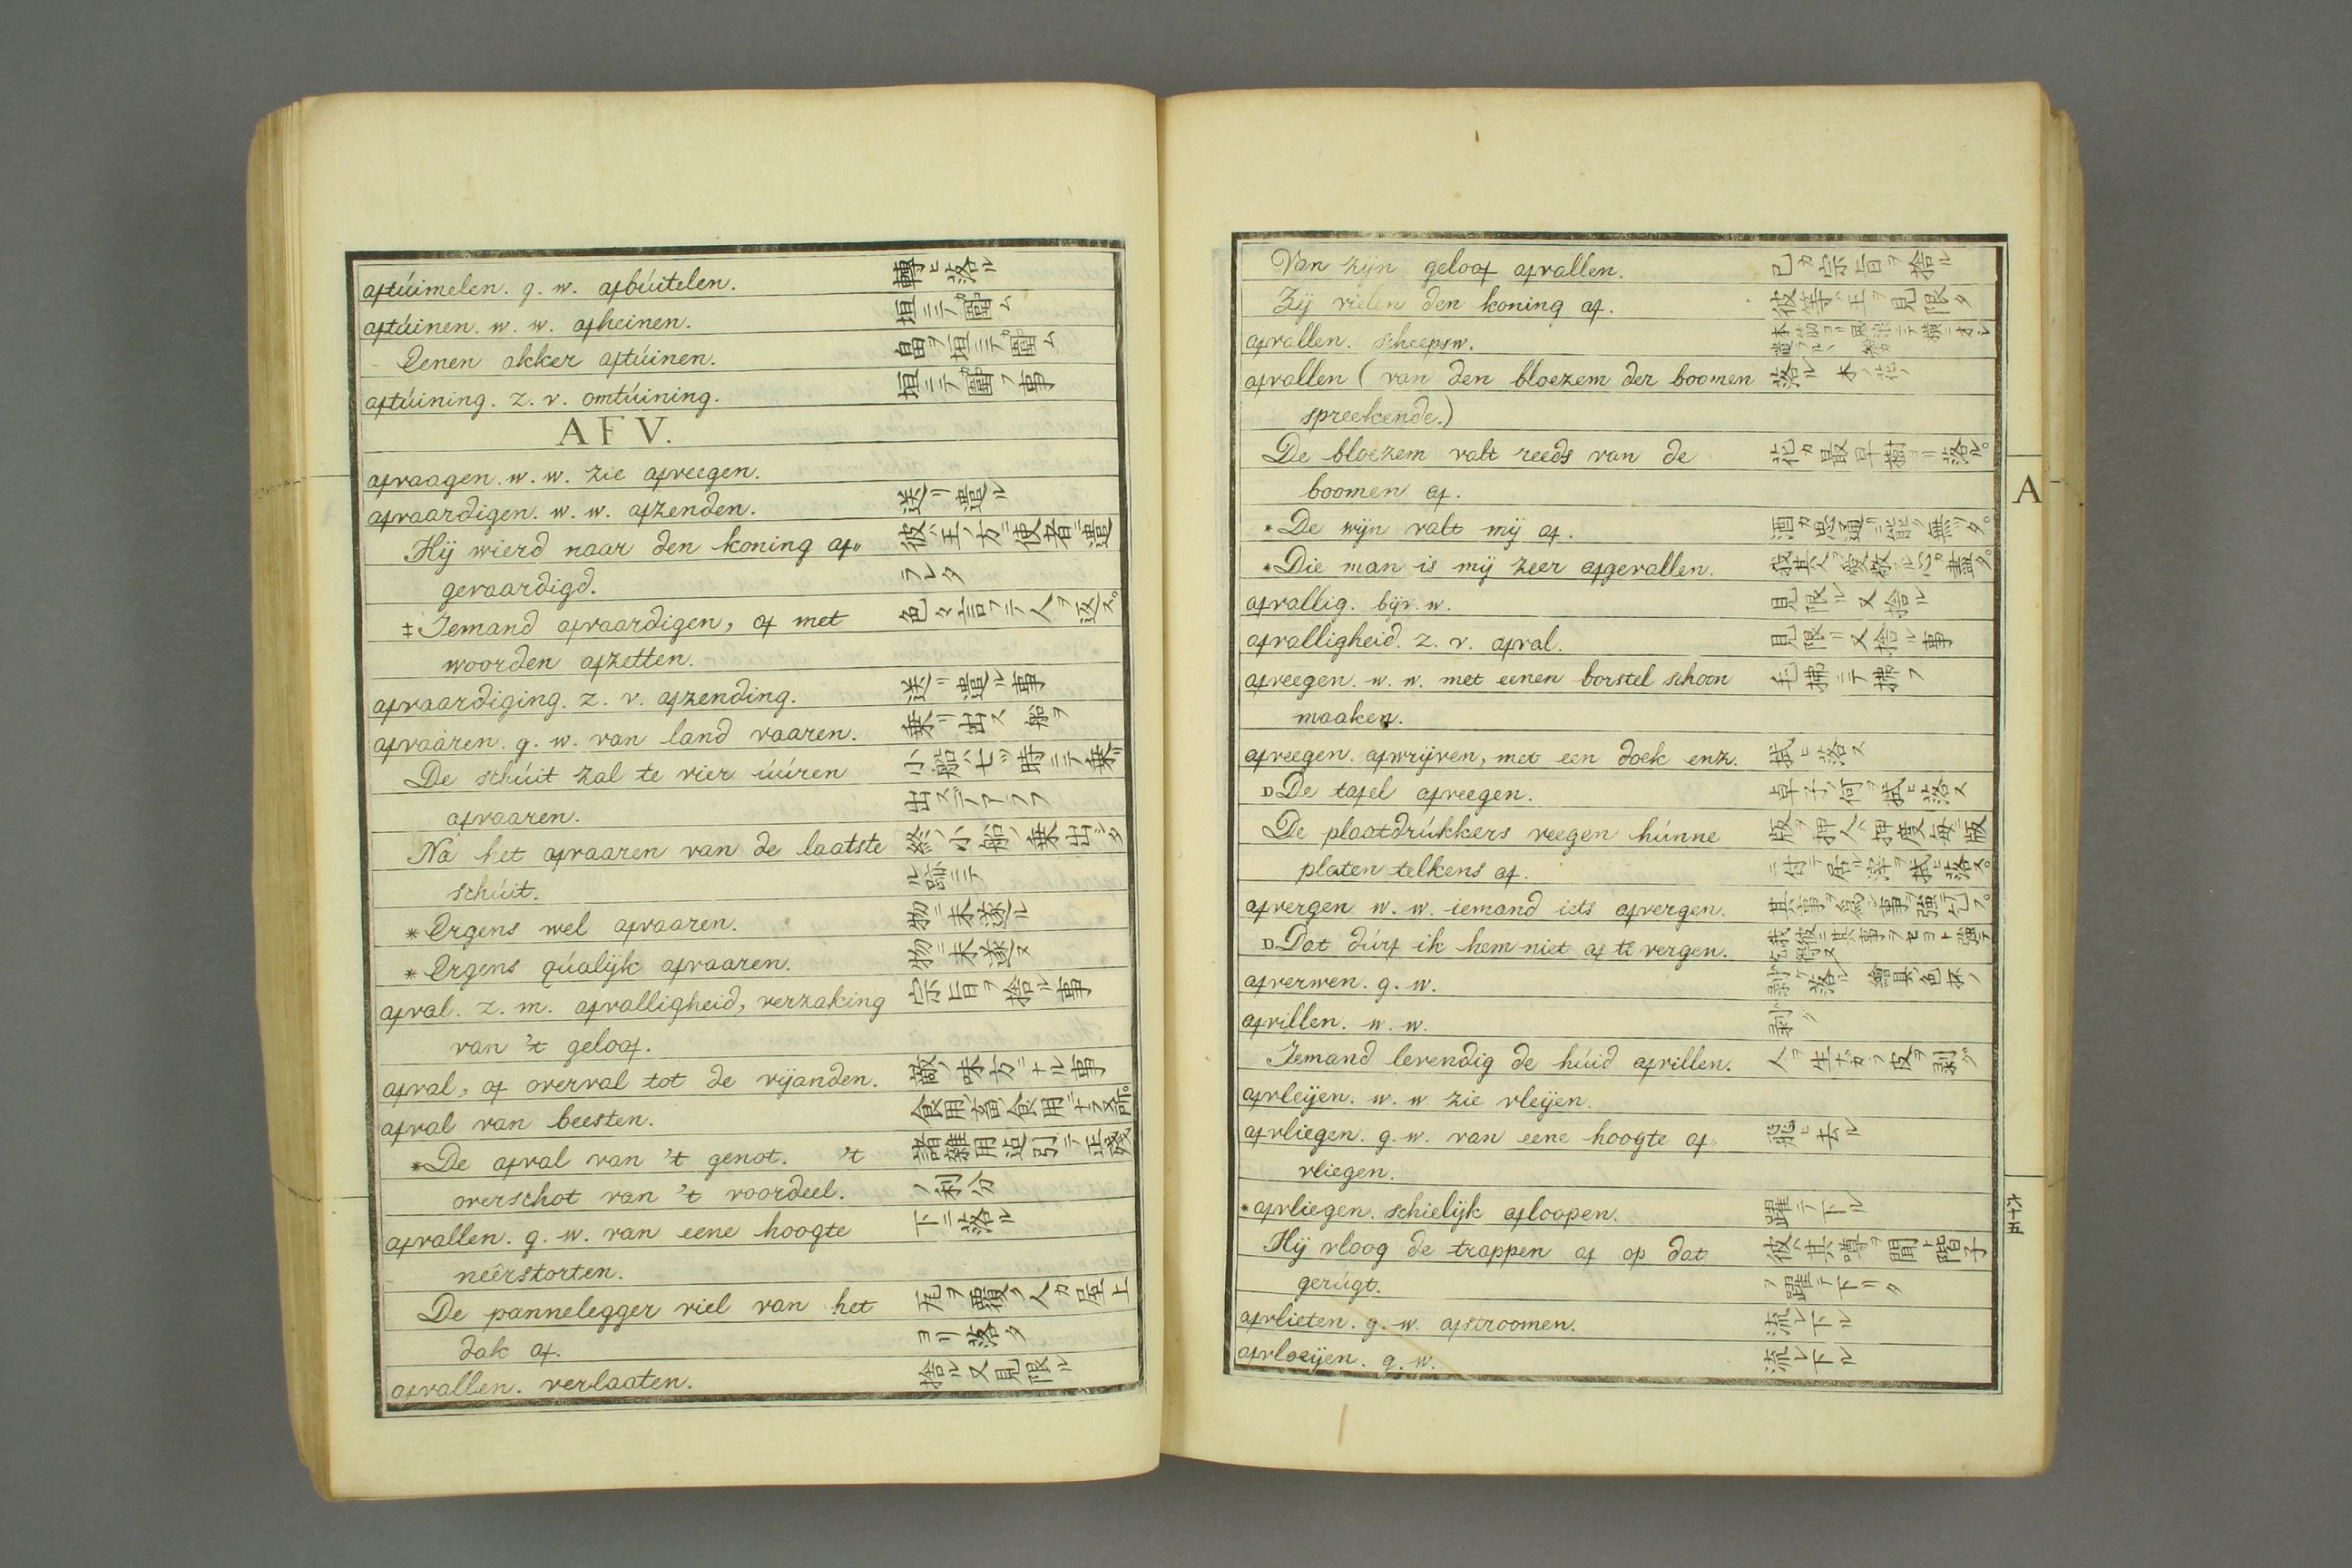 aftúimelen. g. w. afbúitelen. 轉ヒ落ル
aftúinen. w. w. afheinen. 垣ニテ圍ム
Eenen akker aftúinen. 畠ヲ垣ニテ圍ム
aftúining. z. v. omtúining. 垣ニテ圍フ事
AFV.
afvaagen. w. w. zie afveegen.
afvaardigen. w. w. afzenden. 送リ遣ル
Hij wierd naar den koning af„ 彼ハ王ノ方ニ使者ニ遣
gevaardigd. ラレタ
‡ Iemand afvaardigen, of met 色々言フテ人ヲ返ス。
woorden afzetten.
afvaardiging. z. v. afzending. 送リ遣ル事
afvaaren. g. w. van land vaaren. 乗リ出ス 船ヲ
De schúit zal te vier úúren 小船ハ七ツ時ニテ乗リ
afvaaren. 出スデアラフ
Na het afvaaren van de laatste 終ノ小船ノ乗出シタ
schúit. ル跡ニテ
* Ergens wel afvaaren. 物ニ末遂ル
* Ergens qúalijk afvaaren. 物ニ末遂ヌ
afval. z. m. afvalligheid, verzaking 宗旨ヲ捨ル事
van 't geloof.
afval, of overval tot de vijanden. 敵ノ味方ニナル事
afval van beesten. 食用ノ畜ノ食用ニナラヌ所。
* De afval van 't genot. 't 諸雜用迠引テ正殘
overschot van 't voordeel. ノ利分
afvallen. g. w. van eene hoogte 下ニ落ル
neêrstorten.
De pannelegger viel van het 瓦ヲ覆ク人カ屋上
dak af. ヨリ落タ
afvallen. verlaaten. 捨ル又見限ル
Van zijn geloof afvallen. 己カ宗旨ヲ捨ル
Zij vielen den koning af. 彼等ハ王ヲ見限タ
afvallen. scheepsw.
afvallen (van den bloezem der boomen 落ル 木ノ花ノ
spreekende.)
De bloezem valt reeds van de 花カ最早樹ヨリ落ル。
boomen af.
* De wijn valt mij af. 酒カ思通リニ能ク無ツタ。
* Die man is mij zeer afgevallen. 我其人ヲ愛敬スル心カ盡タ。
afvallig. bijv. w. 見限ル又捨ル
afvalligheid. z. v. afval. 見限リ又捨ル事
afveegen. w. w. met eenen borstel schoon 毛拂ニテ拂フ
maaken.
afveegen. afwrijven, met een doek enz. 拭ヒ落ス
D De tafel afveegen. 卓子ノ何ヲ拭ヒ落ス
De plaatdrúkkers veegen húnne 版ヲ押人ハ押度毎ニ版
platen telkens af. ニ付テ居ル滓ヲ拭ヒ落ス。
afvergen w. w. iemand iets afvergen. 其事ヲ為ン事ヲ強テ乞フ。
D Dat dúrf ik hem niet af te vergen. 我彼ニ其事ヲセヨト強テ
afverwen. g. w. 剥ケ落ル 繪具ノ色抔ノ
afvillen. w. w. 剥グ
Iemand levendig de húid afvillen. 人ヲ生ナガラ皮ヲ剥グ
afvleijen. w. w. zie vleijen.
afvliegen. g. w. van eene hoogte af„ 飛ヒ去ル
vliegen.
* afvliegen. schielijk afloopen. 躍テ下ル
Hij vloog de trappen af op dat 彼ハ其噂ヲ聞ト階子
gerúgt. ヲ躍テ下リタ
afvlieten. g. w. afstroomen. 流レ下ル
afvloeijen. g. w. 流レ下ル
A
六十五